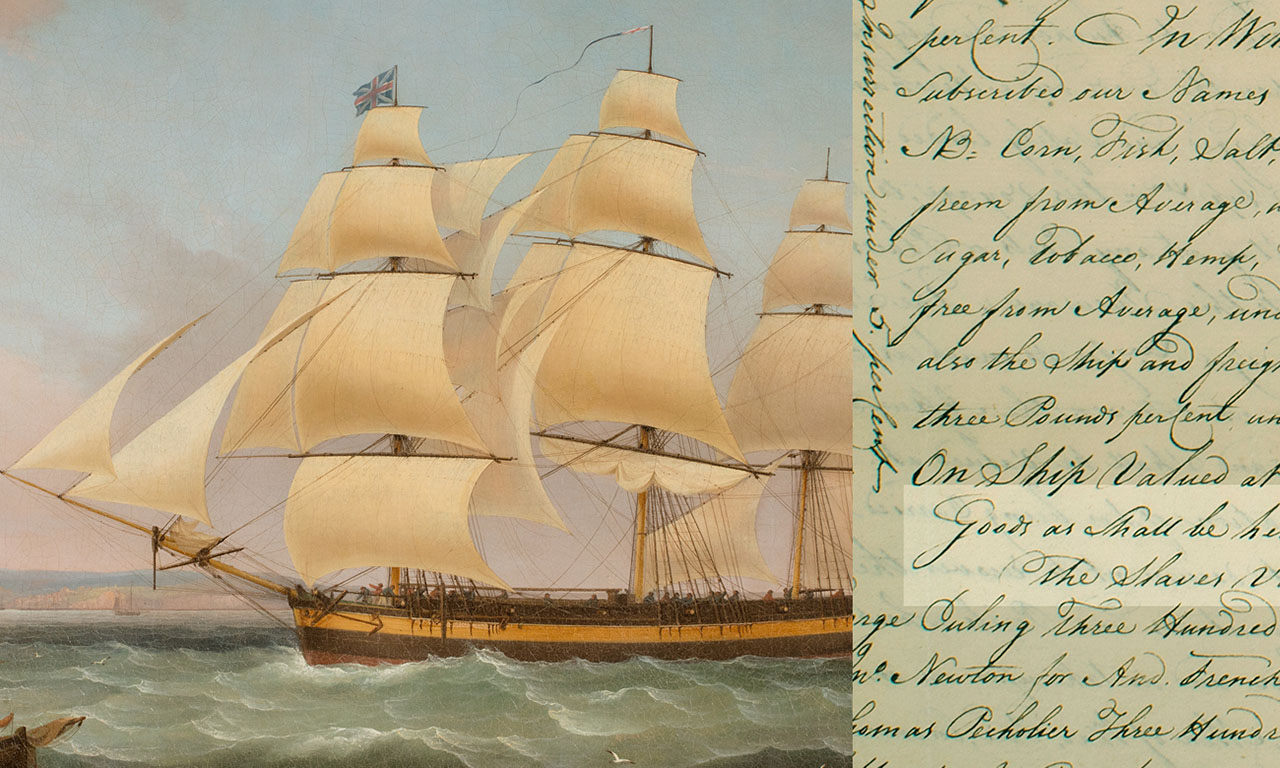 Insurrection under 5. perCent
perCent. In Wit
Subscribed our Names
NB= Corn, Fish, Salt,
freem from Average, u
Sugar, Tobacco, Hemp,
free from Average, und
also the Ship and freig
three Pounds perCent un
On Ship Valued at
Goods as Shall be he
The Slaves V
rge Puling Three Hundred
no. Newton for And. French
homas Pecholier Three Hundr